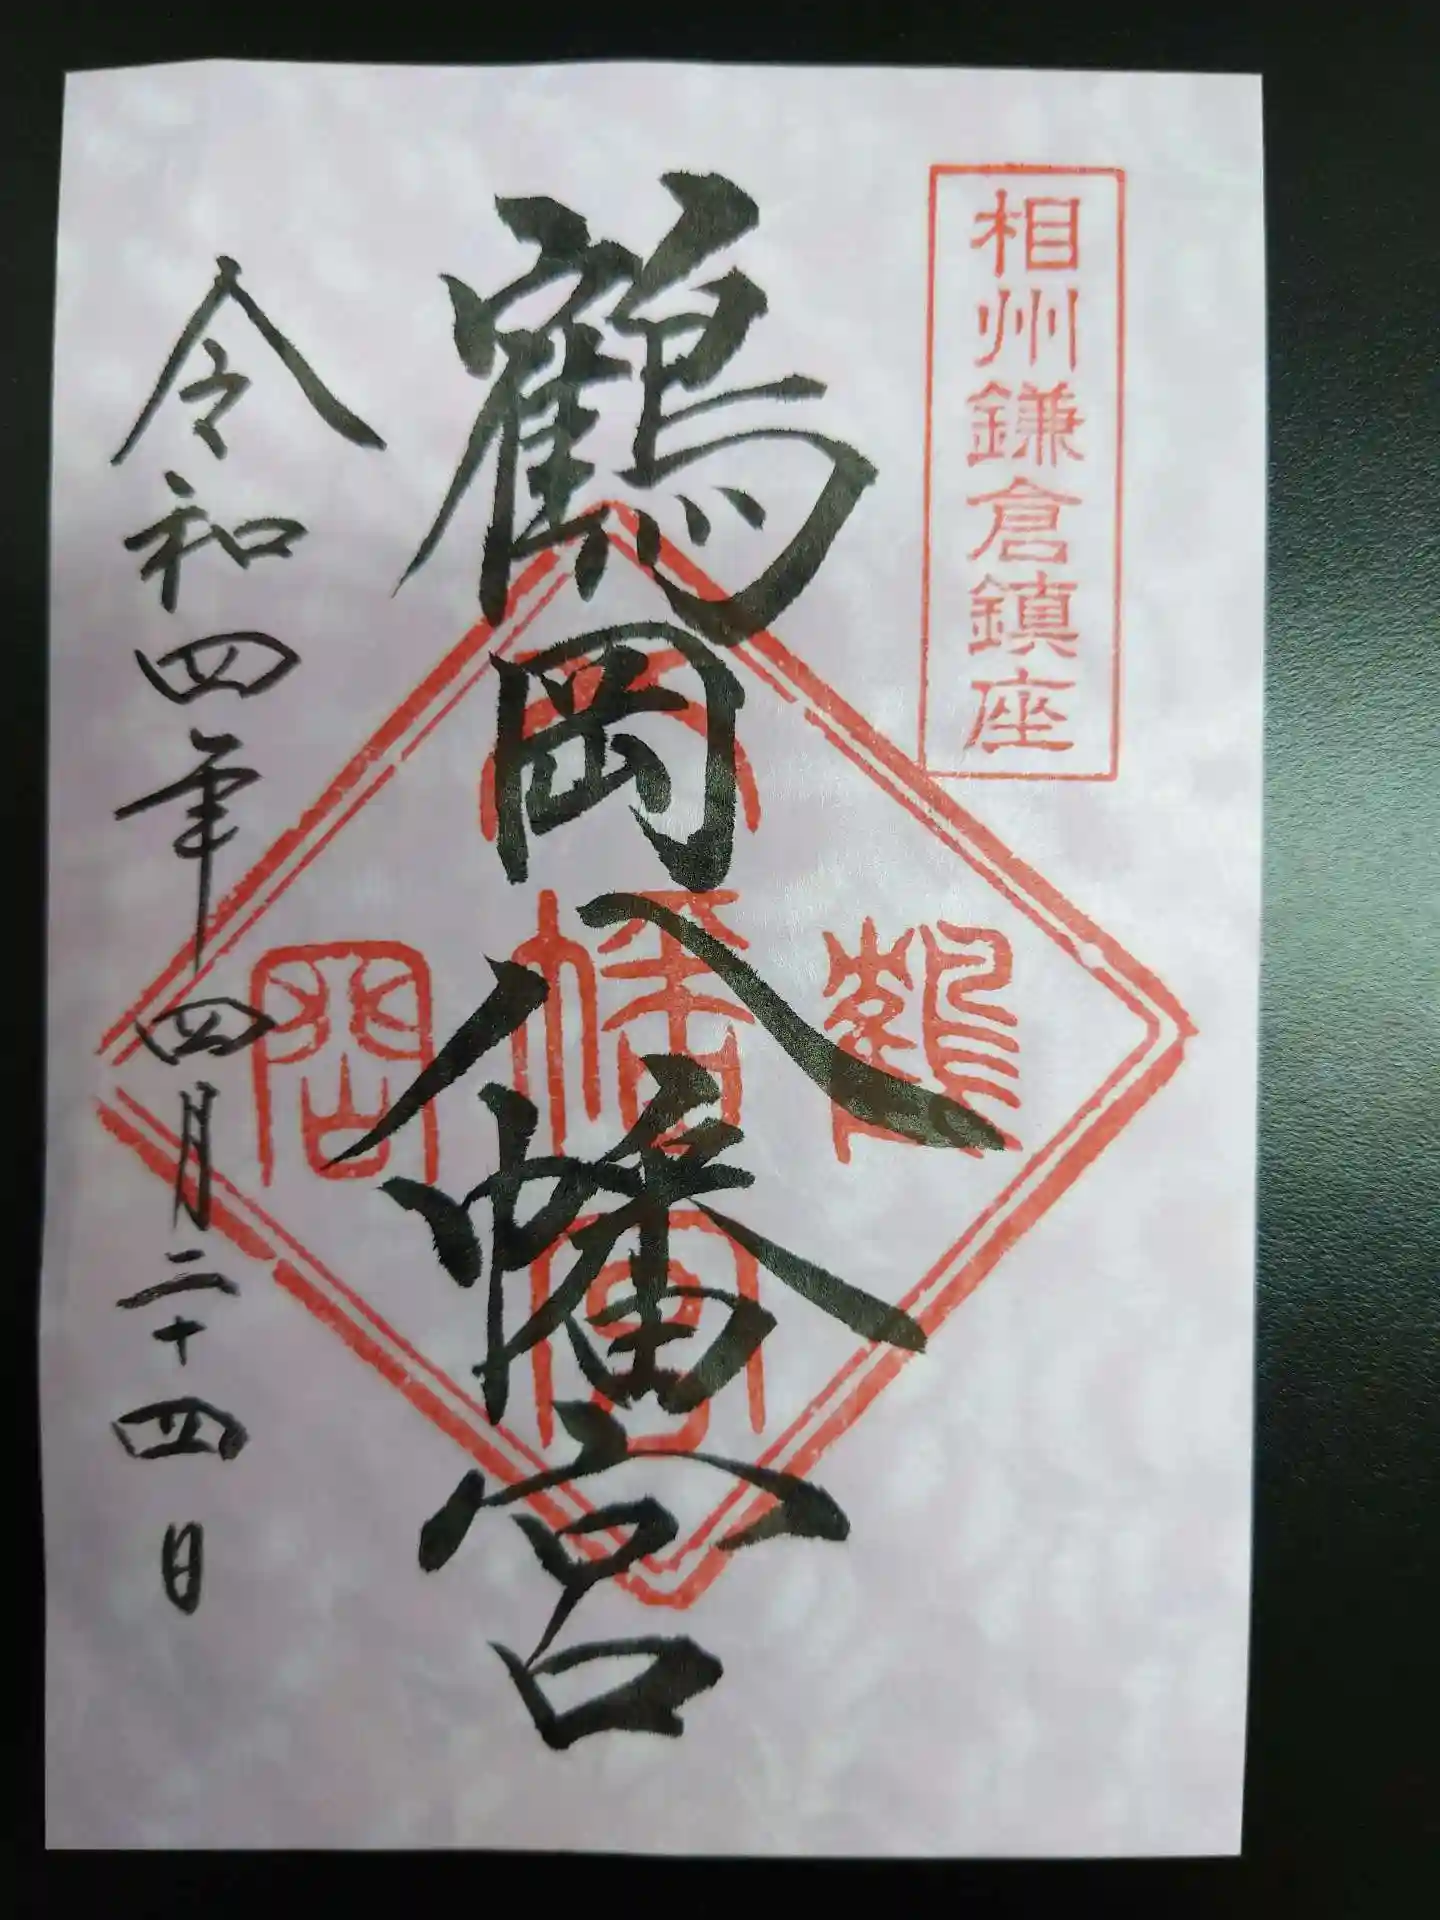 相州鎌倉鎮座
鶴岡八幡宮
令和四年四月二十四日
鶴
岡
八
幡
宮